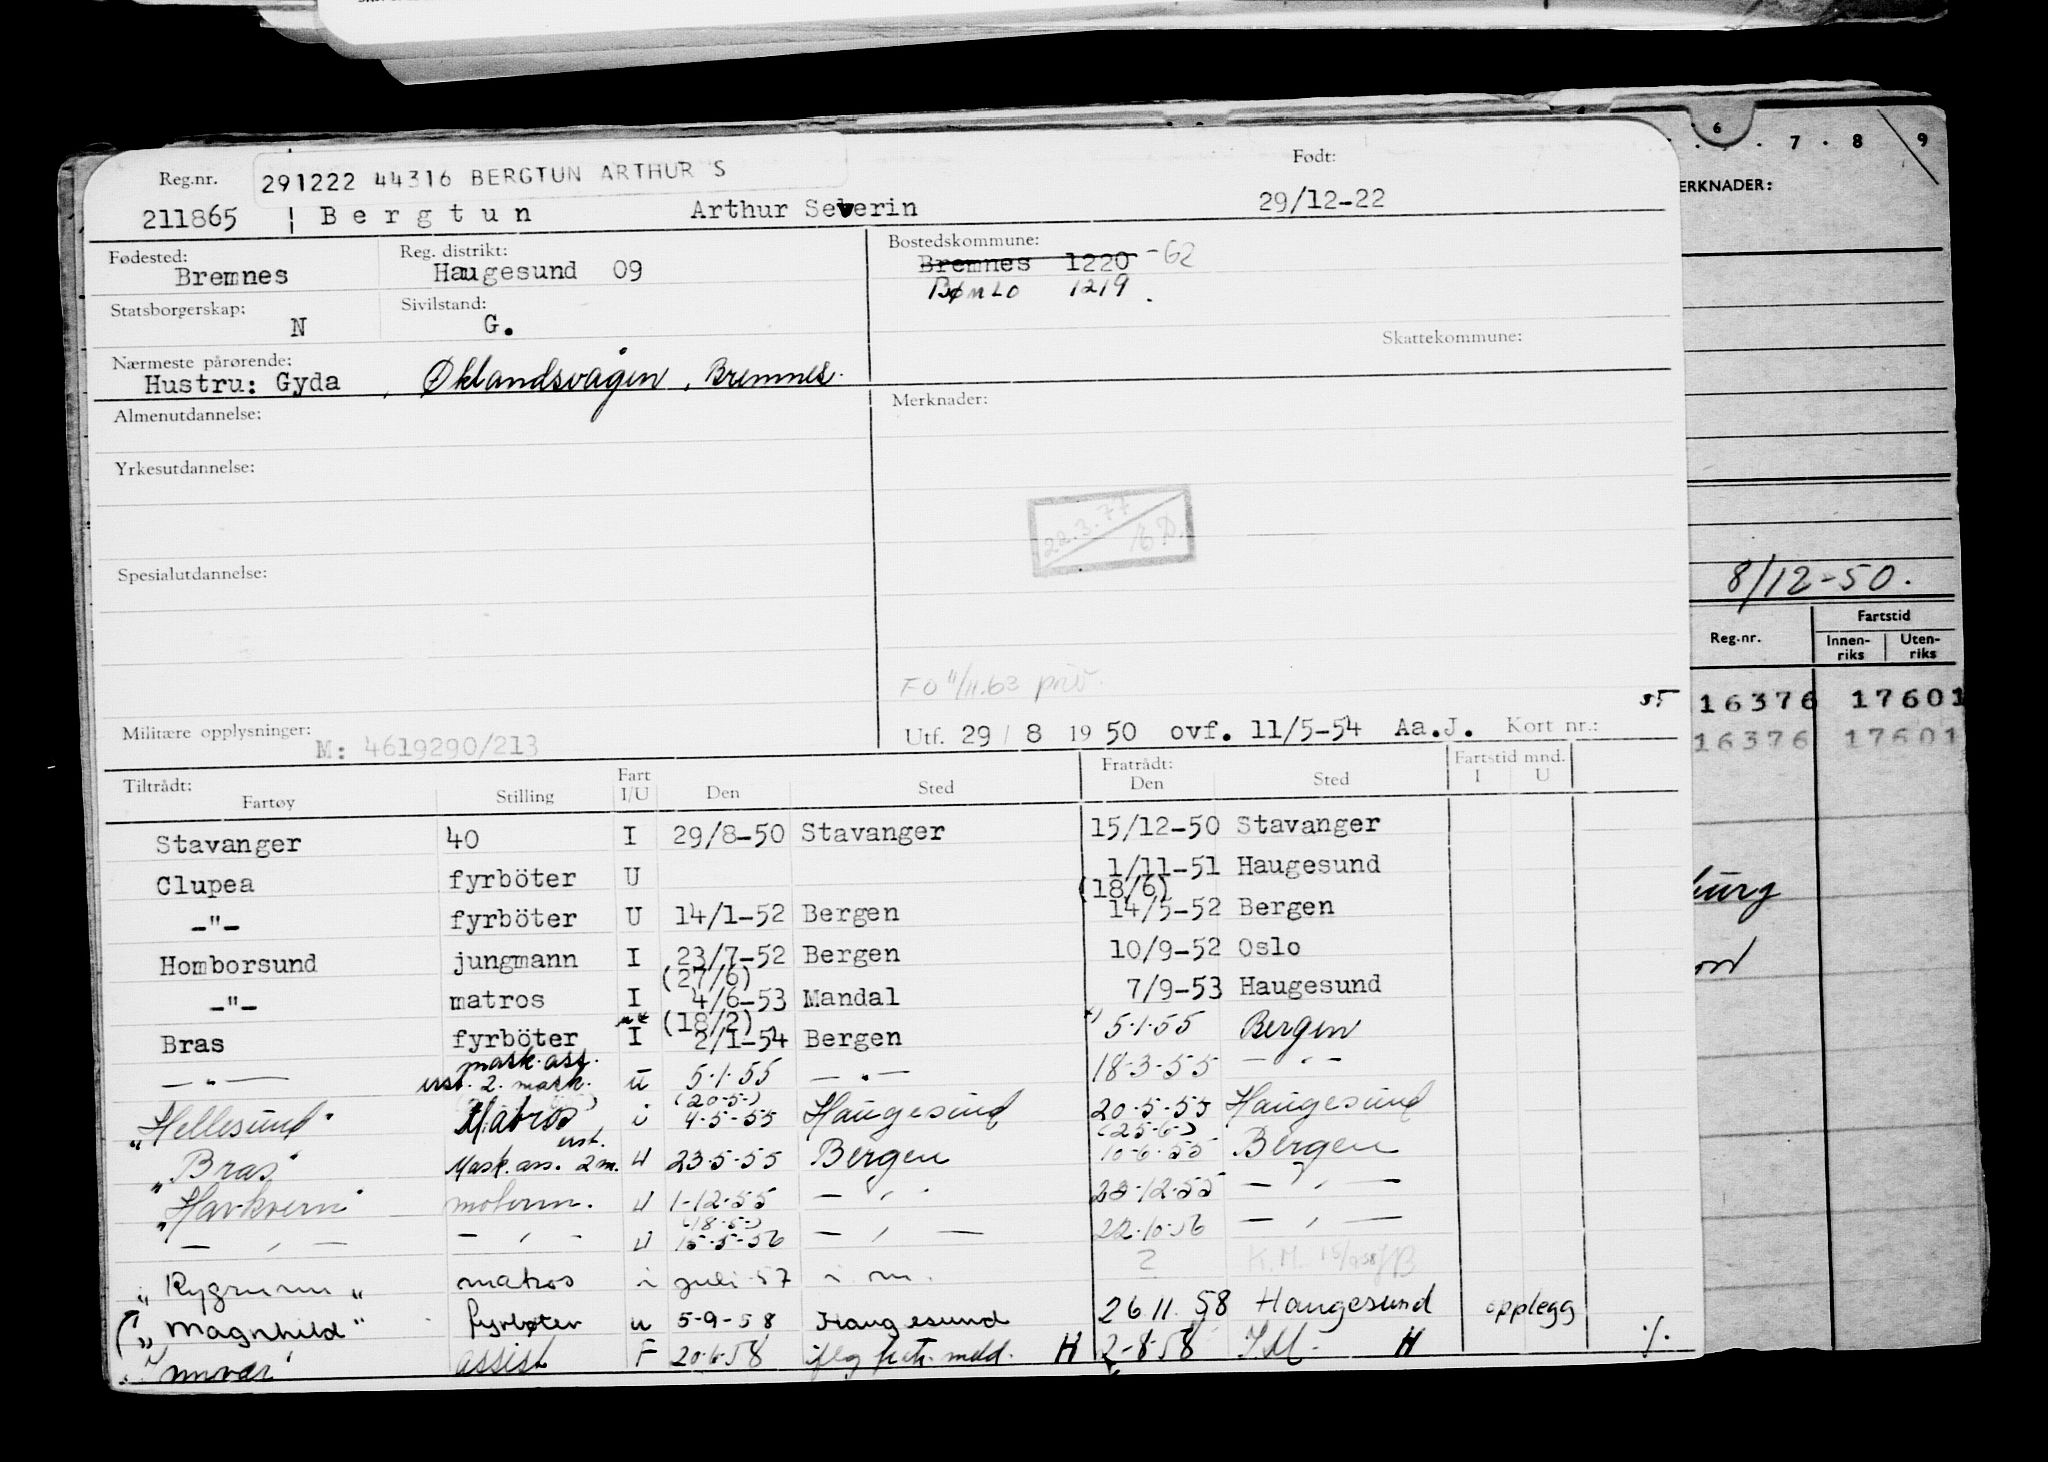 6 . 7 . 8 9
ERKNADER:
Reg.nr. 291222 44316 BERGTUN ARTHUR S Født:
211865 Bergtun Arthur Severin 29/12-22
Fødested: Reg. distrikt: Bostedskommune:
Bremnes Haugesund 09 Bremnes 1220 -62
BØMLO 1219.
Statsborgerskap: Sivilstand:
N G.
Skattekommune:
Nærmeste pårørende:
Hustru: Gyda, Øklandsvågen, Bremnes.
Almenutdannelse: Merknader:
Yrkesutdannelse:
22.3.77
Spesialutdannelse:
8/12-50.
Fartstid
Reg.nr. Innen-riks Uten-riks
FO 11/11.63 priv.
16376 17601
16376 17601
Militære opplysninger: M: 4619290/213
Utf. 29/8 1950 ovf. 11/5-54 Aa.J. Kort nr.:
Tiltrådt: Fart Fratrådt: Fartstid mnd.
Fartøy Stilling I/U Den Sted Den Sted I U
Stavanger 40 I 29/8-50 Stavanger 15/12-50 Stavanger
Clupea fyrböter U 1/11-51 Haugesund
(18/6)
-"- fyrböter U 14/1-52 Bergen 14/5-52 Bergen
Homborsund jungmann I 23/7-52 Bergen 10/9-52 Oslo
(27/6)
-"- matros I 4/6-53 Mandal 7/9-53 Haugesund
(18/2)
Bras fyrböter I 2/1-54 Bergen 5.1.55 Bergen
mask.ass.
-"- 2. mask. u 5.1.55 -"- 18.3.55 -"-
(20.5.)
"Hellesund" Matros i 4.5.55 Haugesund 20.5.55 Haugesund
(25.6.)
"Bras" Mask.ass. 2m. u 23.5.55 Bergen 10.6.55 Bergen
"Havkvern" motorm. u 1.12.55 -"- 23.12.55 -"-
(18.5.)
-"- -"- u 15.5.56 -"- 22.10.56 -"-
"Rygrunn" matros i juli 57 i.m. ?
"Magnhild" fyrbøter u 5-9-58 Haugesund 26.11.58 Haugesund opplegg
assist F 20.6.58 iflg. meld. H 2-8-58 H